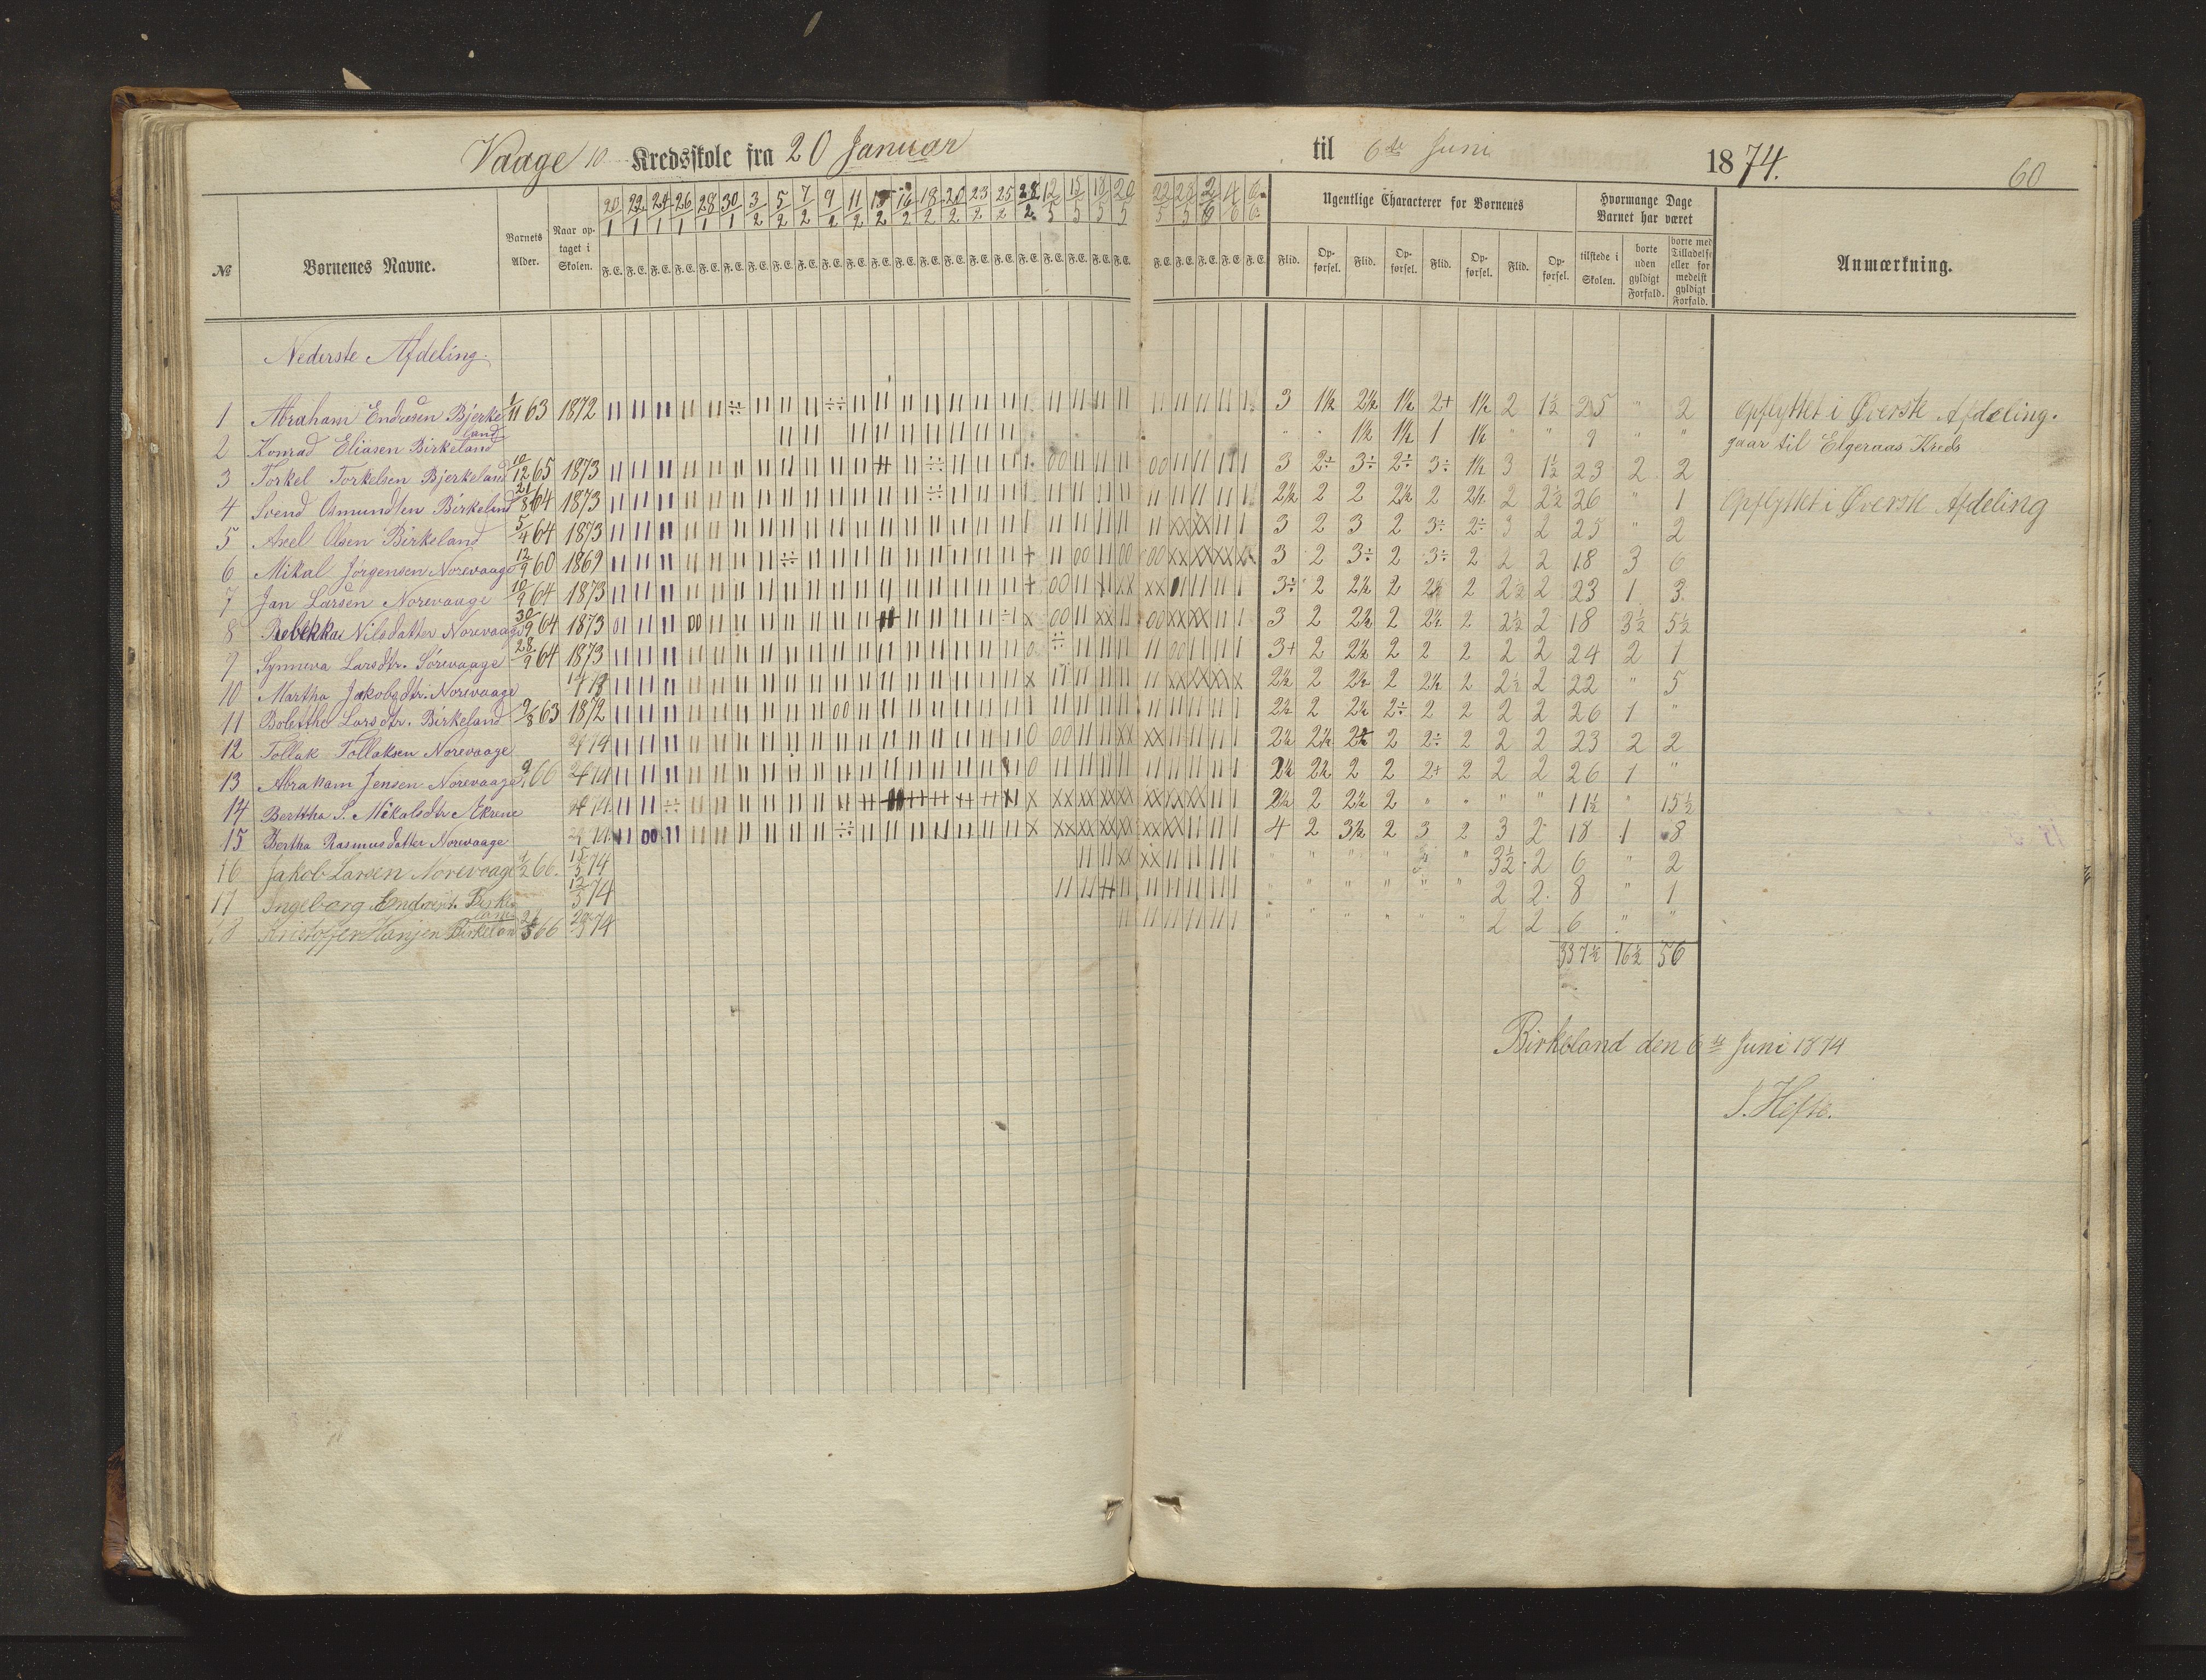 Vaage 10 Kredsskole fra 20 Januar til 6te Juni 1874.
60
№ Børnenes Navne. Barnets Alder. Naar optaget i Skolen. Ugentlige Characterer for Børnenes Hvormange Dage Barnet har været Anmærkning.
20/1 22/1 24/1 26/1 28/1 30/1 3/2 5/2 7/2 9/2 11/2 13/2 16/2 18/2 20/2 23/2 25/2 28/2 12/5 15/5 18/5 20/5 22/5 2/6 4/6 6/6
F.E. F.E. F.E. F.E. F.E. F.E. F.E. F.E. F.E. F.E. F.E. F.E. F.E. F.E. F.E. F.E. F.E. F.E. F.E. F.E. F.E. F.E. F.E. F.E. F.E. F.E. F.E.
Flid. Opførsel. Flid. Opførsel. Flid. Opførsel. Flid. Opførsel. tilstede i Skolen. borte uden gyldigt Forfald. borte med Tilladelse eller for medelst gyldigt Forfald.
Nederste Afdeling.
1 Abraham Endresen Bjerkeland 1/11 63 1872 3 1½ 2½ 1½ 2+ 1½ 2 1½ 25 " 2 Opflyttet i Øverste Afdeling.
2 Konrad Eliasen Birkeland " " 1½ 1½ 1 1½ " " 9 " " gaar til Elgeraas Kreds
3 Torkel Torkelsen Bjerkeland 10/12 65 1873 3 2÷ 3÷ 2÷ 3÷ 1½ 3 1½ 23 2 2
4 Svend Osmundsen Birkeland 21/8 64 1873 2½ 2 2 2½ 2 2½ 2 2½ 26 " 1 Opflyttet i Øverste Afdeling
5 Axel Olsen Birkeland 5/4 64 1873 3 2 3 2 3÷ 2÷ 3 2 25 " 2
6 Mikal Jörgensen Norevaage 12/9 60 1869 3 2 3÷ 2 3÷ 2 2 2 18 3 6
7 Jan Larsen Norevaage 10/9 64 1873 3÷ 2 2½ 2 2½ 2 2½ 2 23 1 3
8 Rebekka Nilsdatter Norevaage 30/9 64 1873 3 2 2½ 2 2½ 2 2½ 2 18 3½ 5½
9 Synneva Larsdtr. Sörevaage 28/9 64 1873 3+ 2 2½ 2 2 2 2 2 24 2 1
10 Martha Jakobsdtr. Norevaage 2½ 2 2½ 2 2½ 2 2½ 2 22 " 5
11 Bolettha Larsdtr. Birkeland 9/8 63 1872 2½ 2 2½ 2÷ 2 2 2 2 26 1 "
12 Tollak Tollaksen Norevaage 2½ 2½ 2½ 2 2÷ 2 2 2 23 2 2
13 Abraham Jensen Norevaage 66 2½ 2½ 2 2 2+ 2 2 2 26 1 "
14 Berttha S. Mikalsdtr Ekrene 2½ 2 2½ 2 " " " " 11½ " 15½
15 Bertha Rasmusdatter Norevaage 4 2 3½ 2 3 2 3 2 18 1 8
16 Jakob Larsen Norevaage 1/2 66. 15/5 74 " " " " " " 3½ 2 6 " 2
17 Ingeborg Endresdt. Birkeland 12/5 74 " " " " " " 2 2 8 " 1
18 Kristoffer Hansen Birkeland 66 20/5 74 " " " " " " 2 2 6 " "
337½ 16½ 56
Birkeland den 6te Juni 1874